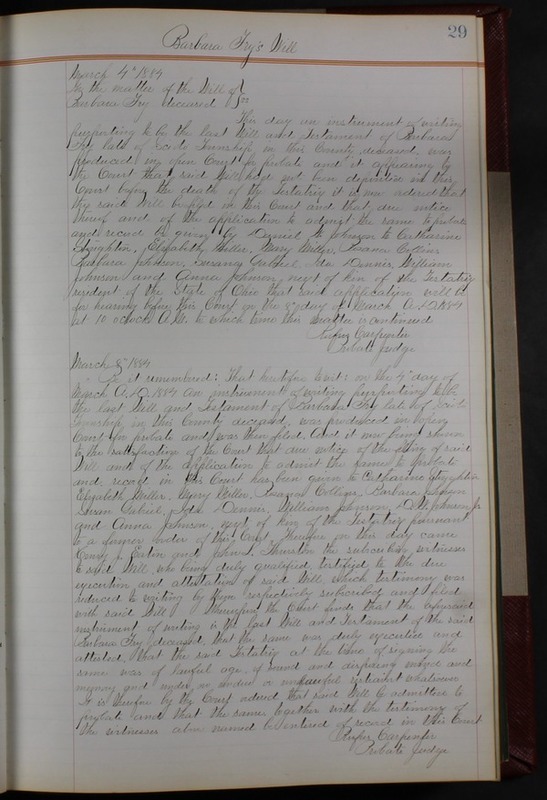 29
Barbara Fry's Will
March 4th 1884
In the matter of the Will of
Barbara Fry deceased
This day an instrument of writing
purporting to be the last Will and Testament of Barbara
Fry late of Scioto Township in this County deceased was
produced in open Court for probate and it appearing to
the Court that said Will had not been deposited in this
Court before the death of the Testatrix it is now ordered that
the said Will be filed in this Court and that due notice
thereof and of the application to admit the same to probate
and record be given by Daniel W Johnson to Catharine
Elizabeth Miller, Mary Miller, Roanna Collins
Barbara Johnson, Susana Gabriel, Ida Dennis, William
Johnson and Anna Johnson, next of kin of the Testatrix
resident of the State of Ohio that said application will be
for hearing before this Court on the 8th day of March A.D. 1884
at 10 oclock A.M. to which time this matter is continued
Rufus Carpenter
Probate Judge
March 8th 1884
Be it remembered: That heretofore towit: on the 4th day of
March A.D. 1884 an instrument of writing purporting to be
the last Will and Testament of Barbara Fry late of Scioto
Township in this County deceased, was produced in open
Court for probate and was then filed. And it now being shown
to the satisfaction of the Court that due notice of the filing of said
Will and of the application to admit the same to probate
and record in this Court has been given to Catharine
Elizabeth Miller, Mary Miller, Roanna Collins, Barbara Johnson
Susan Gabriel, Ida Dennis, William Johnson, D.W. Johnson Jr
and Anna Johnson, next of kin of the Testatrix pursuant
to a former order of this Court, Therefore on this day came
and John L. Thurston the subscribing witnesses
to said Will who being duly qualified, testified to the due
execution and attestation of said Will, which testimony was
reduced to writing by them respectively subscribed and filed
with said Will Whereupon the Court finds that the aforesaid
instrument of writing is the last Will and Testament of the said
Barbara Fry, deceased, that the same was duly executed and
attested, that the said Testatrix at the time of signing the
same was of lawful age, of sound and disposing mind and
memory and under no undue or unlawful restraint whatsoever
It is therefore by the Court ordered that said Will be admitted to
probate and that the same together with the testimony of
the witnesses above named be entered of record in this Court
Rufus Carpenter
Probate Judge